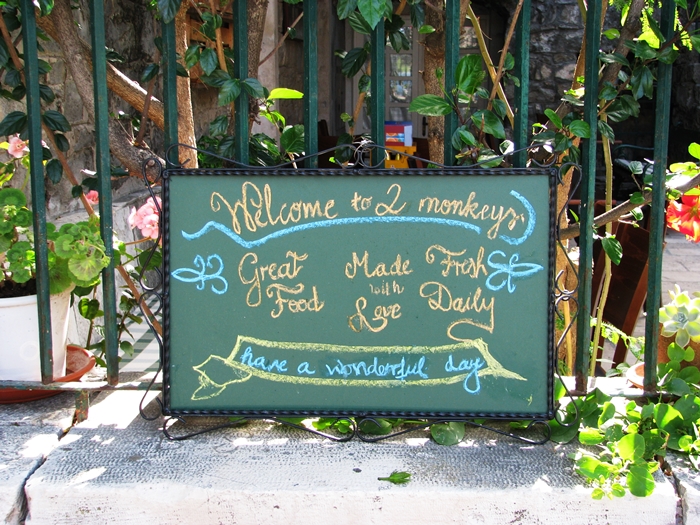 Welcome to 2 monkeys
Great Food
Made with Love
Fresh Daily
have a wonderful day